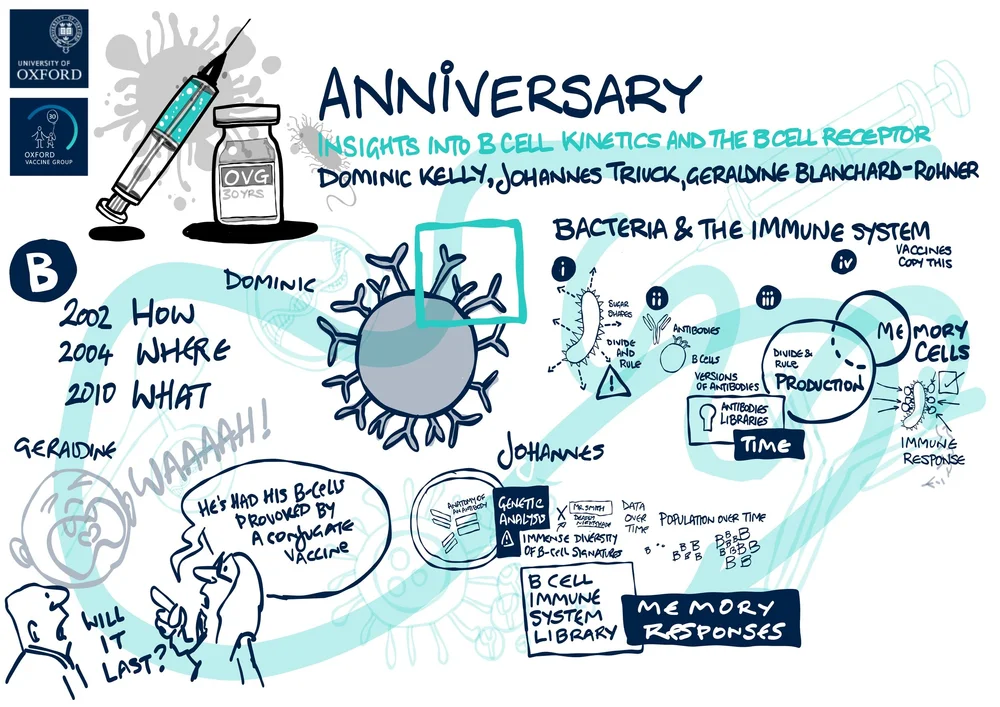 UNIVERSITY OF
OXFORD
30
OXFORD
VACCINE GROUP
OVG
30 YRS
ANNIVERSARY
INSIGHTS INTO B CELL KINETICS AND THE B CELL RECEPTOR
DOMINIC KELLY, JOHANNES TRUCK, GERALDINE BLANCHARD-ROHNER
B
DOMINIC
2002 HOW
2004 WHERE
2010 WHAT
BACTERIA & THE IMMUNE SYSTEM
i
SUGAR
SHAPES
DIVIDE
AND
RULE
ii
ANTIBODIES
B CELLS
VERSIONS
OF ANTIBODIES
ANTIBODIES
LIBRARIES
TIME
iii
DIVIDE &
RULE
PRODUCTION
iv
VACCINES
COPY THIS
MEMORY
CELLS
IMMUNE
RESPONSE
GERALDINE
WAAAAH!
HE'S HAD HIS B-CELLS
PROVOKED BY
A CONJUGATE
VACCINE
WILL
IT
LAST?
JOHANNES
ANATOMY OF
AN ANTIBODY
GENETIC
ANALYSIS
X
MR SMITH
IMMENSE DIVERSITY
OF B-CELL SIGNATURES
DATA
OVER
TIME
POPULATION OVER TIME
B
B B B
B B B
B B B B
B B B
B B
B CELL
IMMUNE
SYSTEM
LIBRARY
MEMORY
RESPONSES